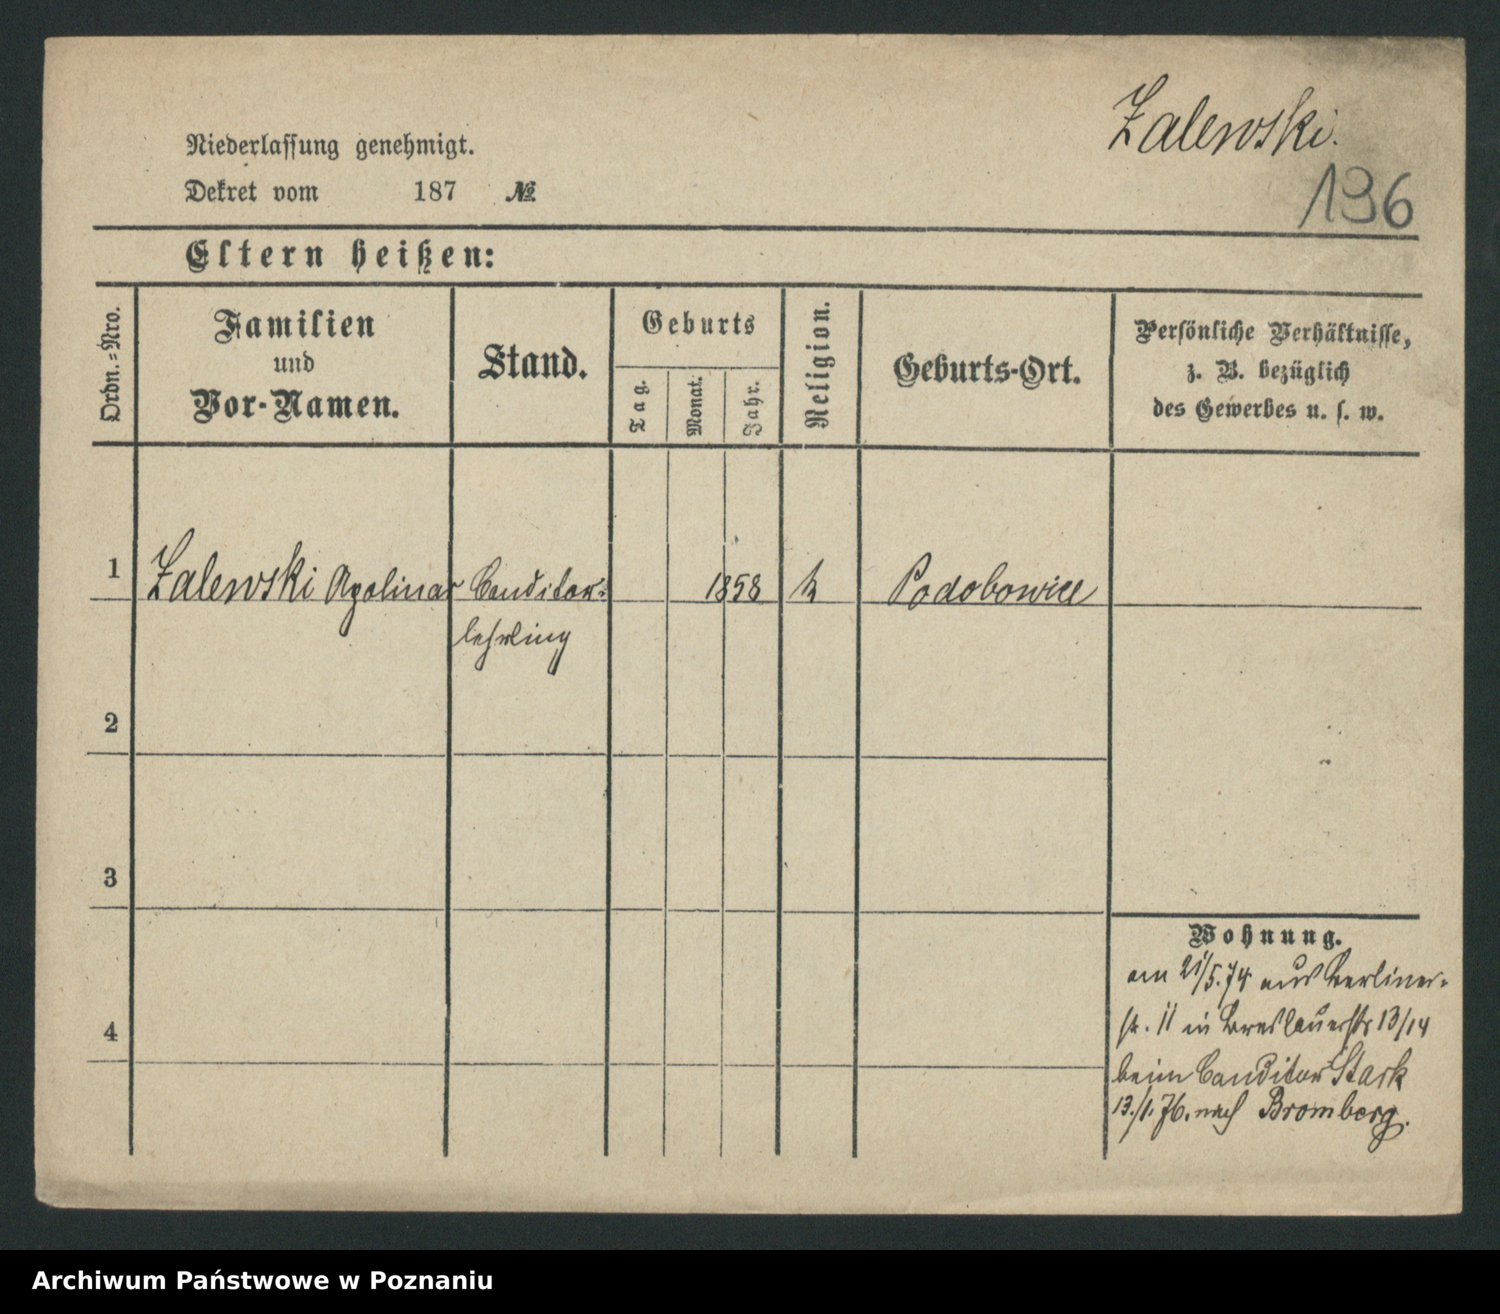 Zalewski.
136
Niederlassung genehmigt.
Dekret vom 187 №
Eltern heißen:
Ordn.=Nro.
Familien
und
Vor-Namen.
Stand.
Geburts
Tag.
Monat.
Jahr.
Religion.
Geburts-Ort.
Persönliche Verhältnisse,
z. B. bezüglich
des Gewerbes u. s. w.
1 Zalewski Apolinar Conditor= 1858 k Podobowice
lehrling
2
3
4
Wohnung.
am 21/5.74 aus Berliner-
str. 11 in Breslauerstr 13/14
beim Conditor Stark
13./1.76. nach Bromberg.
Archiwum Państwowe w Poznaniu